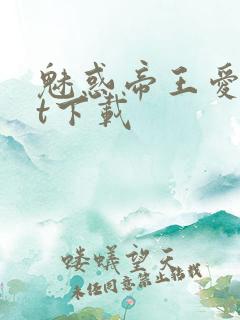 魅惑帝王爱
t下载
喽蚁望天
未经同意禁止转载